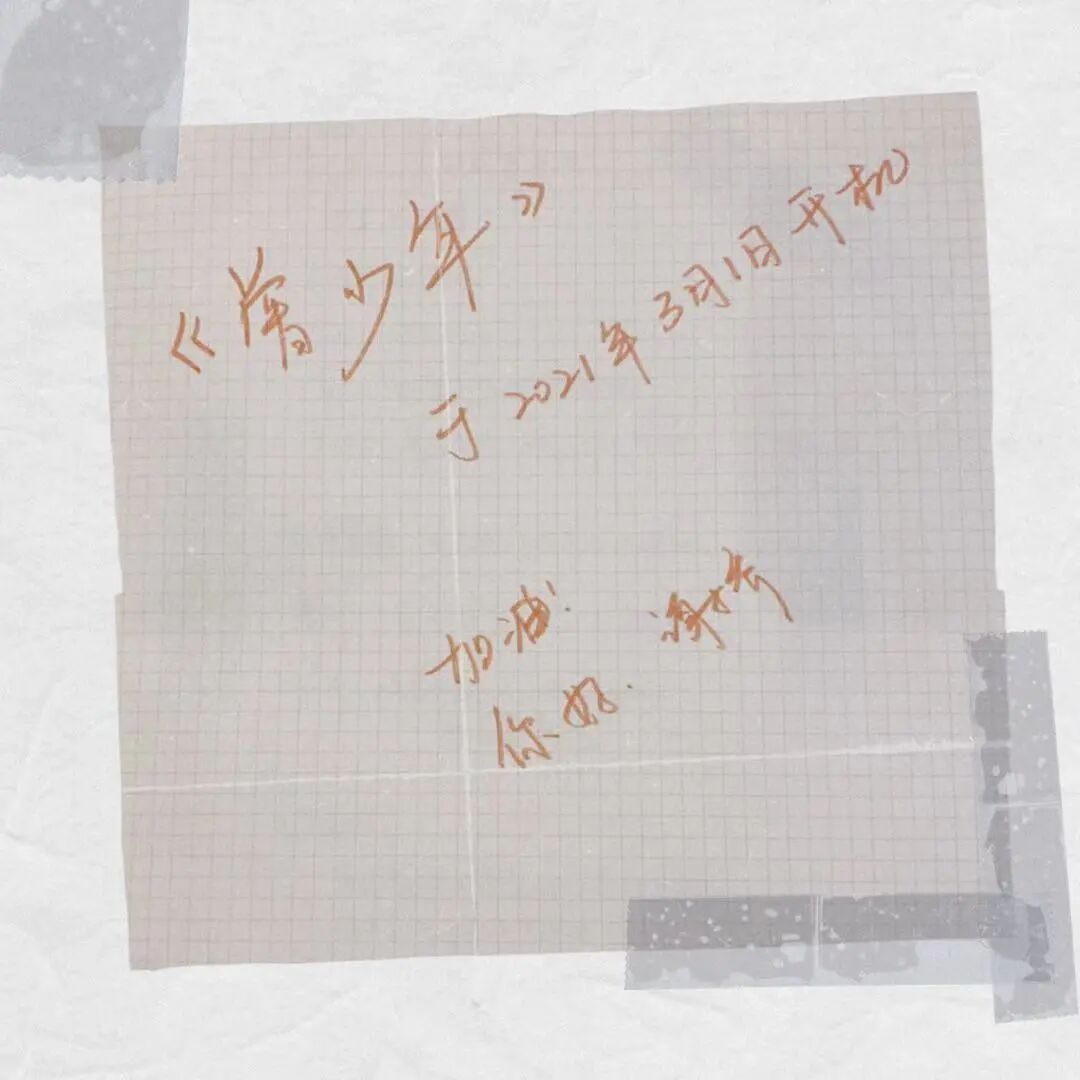 《曾少年》
于2021年3月1日开机
加油!
你好. 谢乔